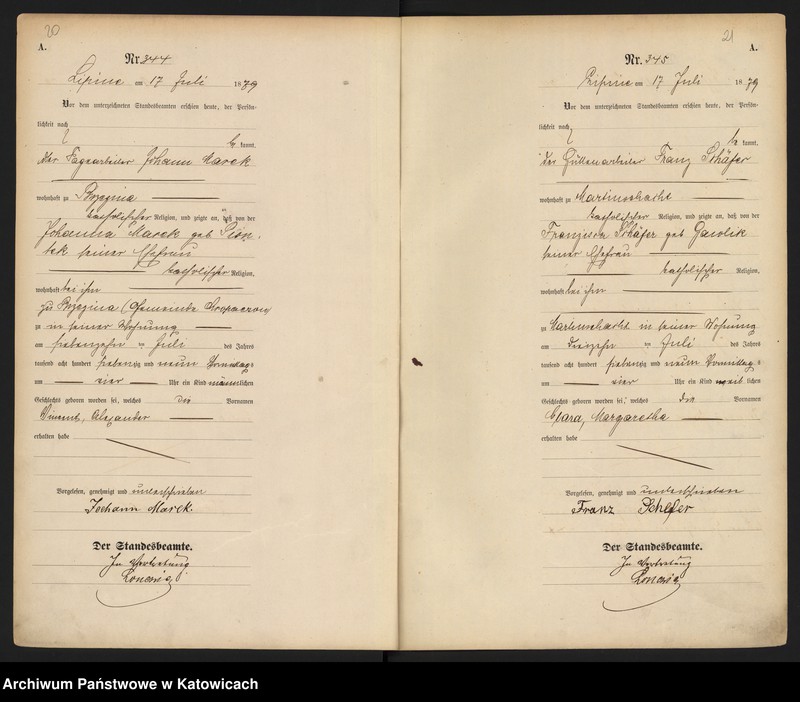 20
A.
Nr. 344
Lipine am 17 Juli 1879
Vor dem unterzeichneten Standesbeamten erschien heute, der Persön-
lichkeit nach
be kannt,
der Tagearbeiter Johann Marek
wohnhaft zu Brzezina
katholischer Religion, und zeigte an, daß von der
Johanna Marek geb Pion-
tek seiner Ehefrau
katholischer Religion,
wohnhaft bei ihm
zu Brzezina (Gemeinde
zu in seiner Wohnung
am siebenzehn ten Juli des Jahres
tausend acht hundert siebenzig und neun Vormittags
um vier Uhr ein Kind männlichen
Geschlechts geboren worden sei, welches die Vornamen
Vincent, Alexander
erhalten habe
Vorgelesen, genehmigt und unterschrieben
Johann Marek
Der Standesbeamte.
In Vertretung
21
A.
Nr. 345
Lipine am 17 Juli 1879
Vor dem unterzeichneten Standesbeamten erschien heute, der Persön-
lichkeit nach
be kannt,
der Hüttenarbeiter Franz Schäfer
wohnhaft zu Martinschacht
katholischer Religion, und zeigte an, daß von der
Franziska Schäfer geb Gawlik
seiner Ehefrau
katholischer Religion,
wohnhaft bei ihm
zu Martinschacht in seiner Wohnung
am dreizehn ten Juli des Jahres
tausend acht hundert siebenzig und neun Vormittags
um vier Uhr ein Kind weib lichen
Geschlechts geboren worden sei, welches die Vornamen
Clara, Margaretha
erhalten habe
Vorgelesen, genehmigt und unterschrieben
Franz Schefer
Der Standesbeamte.
In Vertretung
Archiwum Państwowe w Katowicach